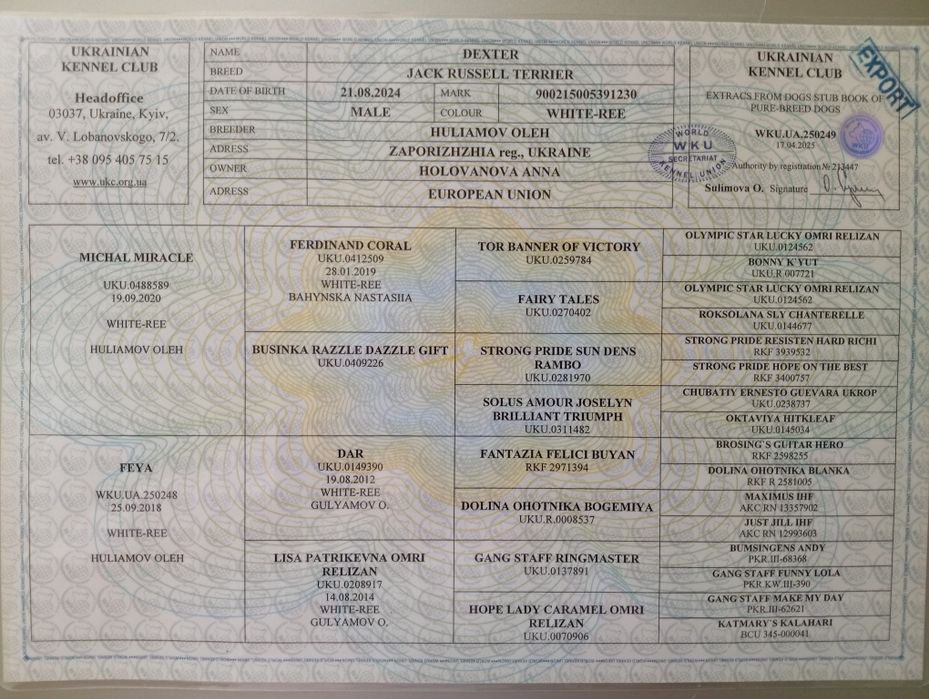 UKRAINIAN
KENNEL CLUB
Headoffice
03037, Ukraine, Kyiv,
av. V. Lobanovskogo, 7/2.
tel. +38 095 405 75 15
www.ukc.org.ua
NAME DEXTER
BREED JACK RUSSELL TERRIER
DATE OF BIRTH 21.08.2024 MARK 900215005391230
SEX MALE COLOUR WHITE-REE
BREEDER HULIAMOV OLEH
ADRESS ZAPORIZHZHIA reg., UKRAINE
OWNER HOLOVANOVA ANNA
ADRESS EUROPEAN UNION
UKRAINIAN
KENNEL CLUB
EXPORT
EXTRACS FROM DOGS STUB BOOK OF
PURE-BREED DOGS
WKU.UA.250249
17.04.2025
Authority by registration № 213447
Sulimova O. Signature
WORLD
WKU
SECRETARIAT
KENNEL UNION
WKU
MICHAL MIRACLE
UKU.0488589
19.09.2020
WHITE-REE
HULIAMOV OLEH
FEYA
WKU.UA.250248
25.09.2018
WHITE-REE
HULIAMOV OLEH
FERDINAND CORAL
UKU.0412509
28.01.2019
WHITE-REE
BAHYNSKA NASTASIIA
BUSINKA RAZZLE DAZZLE GIFT
UKU.0409226
DAR
UKU.0149390
19.08.2012
WHITE-REE
GULYAMOV O.
LISA PATRIKEVNA OMRI
RELIZAN
UKU.0208917
14.08.2014
WHITE-REE
GULYAMOV O.
TOR BANNER OF VICTORY
UKU.0259784
FAIRY TALES
UKU.0270402
STRONG PRIDE SUN DENS
RAMBO
UKU.0281970
SOLUS AMOUR JOSELYN
BRILLIANT TRIUMPH
UKU.0311482
FANTAZIA FELICI BUYAN
RKF 2971394
DOLINA OHOTNIKA BOGEMIYA
UKU.R.0008537
GANG STAFF RINGMASTER
UKU.0137891
HOPE LADY CARAMEL OMRI
RELIZAN
UKU.0070906
OLYMPIC STAR LUCKY OMRI RELIZAN
UKU.0124562
BONNY K`YUT
UKU.R.007721
OLYMPIC STAR LUCKY OMRI RELIZAN
UKU.0124562
ROKSOLANA SLY CHANTERELLE
UKU.0144677
STRONG PRIDE RESISTEN HARD RICHI
RKF 3939532
STRONG PRIDE HOPE ON THE BEST
RKF 3400757
CHUBATIY ERNESTO GUEVARA UKROP
UKU.0238737
OKTAVIYA HITKLEAF
UKU.0145034
BROSING`S GUITAR HERO
RKF 2598255
DOLINA OHOTNIKA BLANKA
RKF R 2581005
MAXIMUS IHF
AKC RN 13357902
JUST JILL IHF
AKC RN 12993603
BUMSINGENS ANDY
PKR.III-68368
GANG STAFF FUNNY LOLA
PKR.KW.III-390
GANG STAFF MAKE MY DAY
PKR.III-62621
KATMARY`S KALAHARI
BCU 345-000041